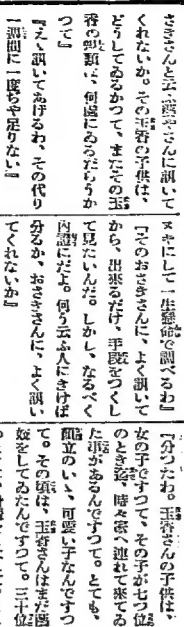 さきさんと云ふ婆やさんに訊いて
くれないか。その玉香の子供は、
どうしてゐるかつて、またその玉
香の親類は、何處にゐるだらうか
つて』
『えゝ訊いてあげるわ、その代り
一週間に一度ぢや足りない』
ヌキにして一生懸命で調べるわ』
『そのおさきさんに、よく訊いて
から、出來るだけ、手段をつくし
て見たいんだ。しかし、なるべく
内證にだよ。何う云ふ人にきけば
分るか、おさきさんに、よく訊い
てくれないか』
『分つたわ。玉香さんの子供は、
女の子ですつて、その子が七つ位
のとき迄、時々家へ連れて來てゐ
た事があるんですつて。とても、
顏立のいゝ、可愛い子なんですつ
て。その頃は、玉香さんはまだ藝
妓をしてゐたんですつて。三十位